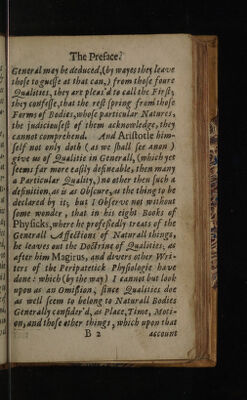 The Preface.
General may be deduced, (by wayes they leave
those to guesse at that can,) from those foure
Qualities, they are pleas'd to call the First,
they confesse, that the rest spring from those
Forms of Bodies, whose particular Natures,
the judiciousest of them acknowledge, they
cannot comprehend. And Aristotle him-
self not only doth (as we shall see anon)
give us of Qualitie in Generall, (which yet
seems far more easily defineable, then many
a Particular Quality,) no other then such a
definition, as is as Obscure, as the thing to be
declared by it; but I Observe not without
some wonder, that in his eight Books of
Physicks, where he professedly treats of the
Generall Affections of Naturall things,
he leaves out the Doctrine of Qualities; as
after him Magirus, and divers other Wri-
ters of the Peripatetick Physiologie have
done: which (by the way) I cannot but look
upon as an Omission, since Qualities doe
as well seem to belong to Naturall Bodies
Generally consider'd, as Place, Time, Moti-
on, and those other things, which upon that
B 2 account